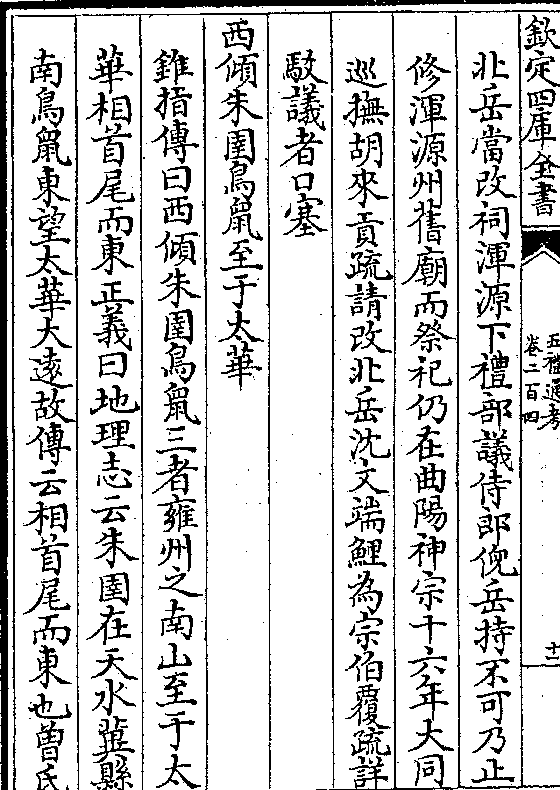 欽定四庫全書
五禮通考
卷二百四
十一
北岳當改祠渾源下禮部議侍郎倪岳持不可乃止
修渾源州舊廟而祭祀仍在曲陽神宗十六年大同
巡撫胡來貢疏請改北岳沈文端鯉為宗伯覆疏詳
駮議者口塞
西傾朱圉鳥鼠至于太華
錐指傳曰西傾朱圉鳥鼠三者雍州之南山至于太
華相首尾而東正義曰地理志云朱圉在天水冀縣
南鳥鼠東望太華大遠故傳云相首尾而東也曾氏